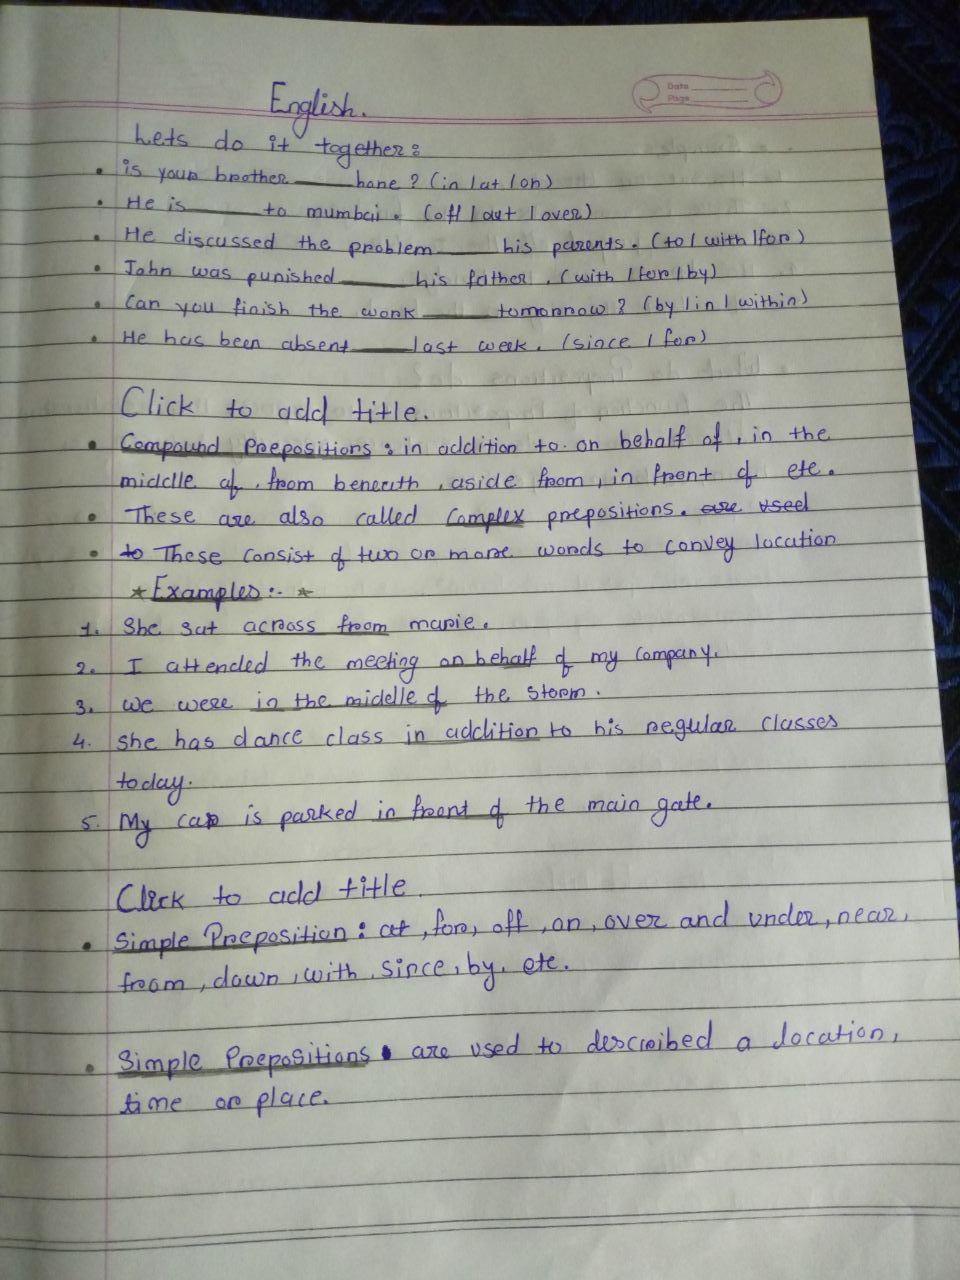 Date
Page
English.
Lets do it together:
• is your brother ____ hone? (in / at / on)
• He is ____ to mumbai. (off / out / over)
• He discussed the problem ____ his parents. (to / with / for)
• John was punished ____ his father. (with / for / by)
• Can you finish the work ____ tomorrow? (by / in / within)
• He has been absent ____ last week. (since / for)
Click to add title.
• Compound Prepositions: in addition to. on behalf of, in the
middle of, from beneath, aside from, in front of etc.
• These are also called Complex prepositions. are used
• to These consist of two or more words to convey location
* Examples:- *
1. She sat across from marie.
2. I attended the meeting on behalf of my company.
3. we were in the midelle of the storm.
4. she has dance class in addition to his regular classes
today.
5. My car is parked in front of the main gate.
Click to add title.
• Simple Preposition: at, for, off, on, over and under, near,
from, down, with, since, by, etc.
• Simple Prepositions are used to described a location,
time or place.